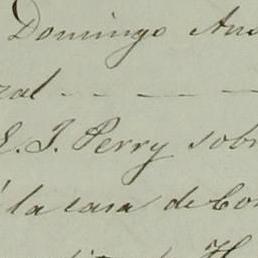 Domingo
zal - - - - -
E. J. Perry sobr
á la casa de Co